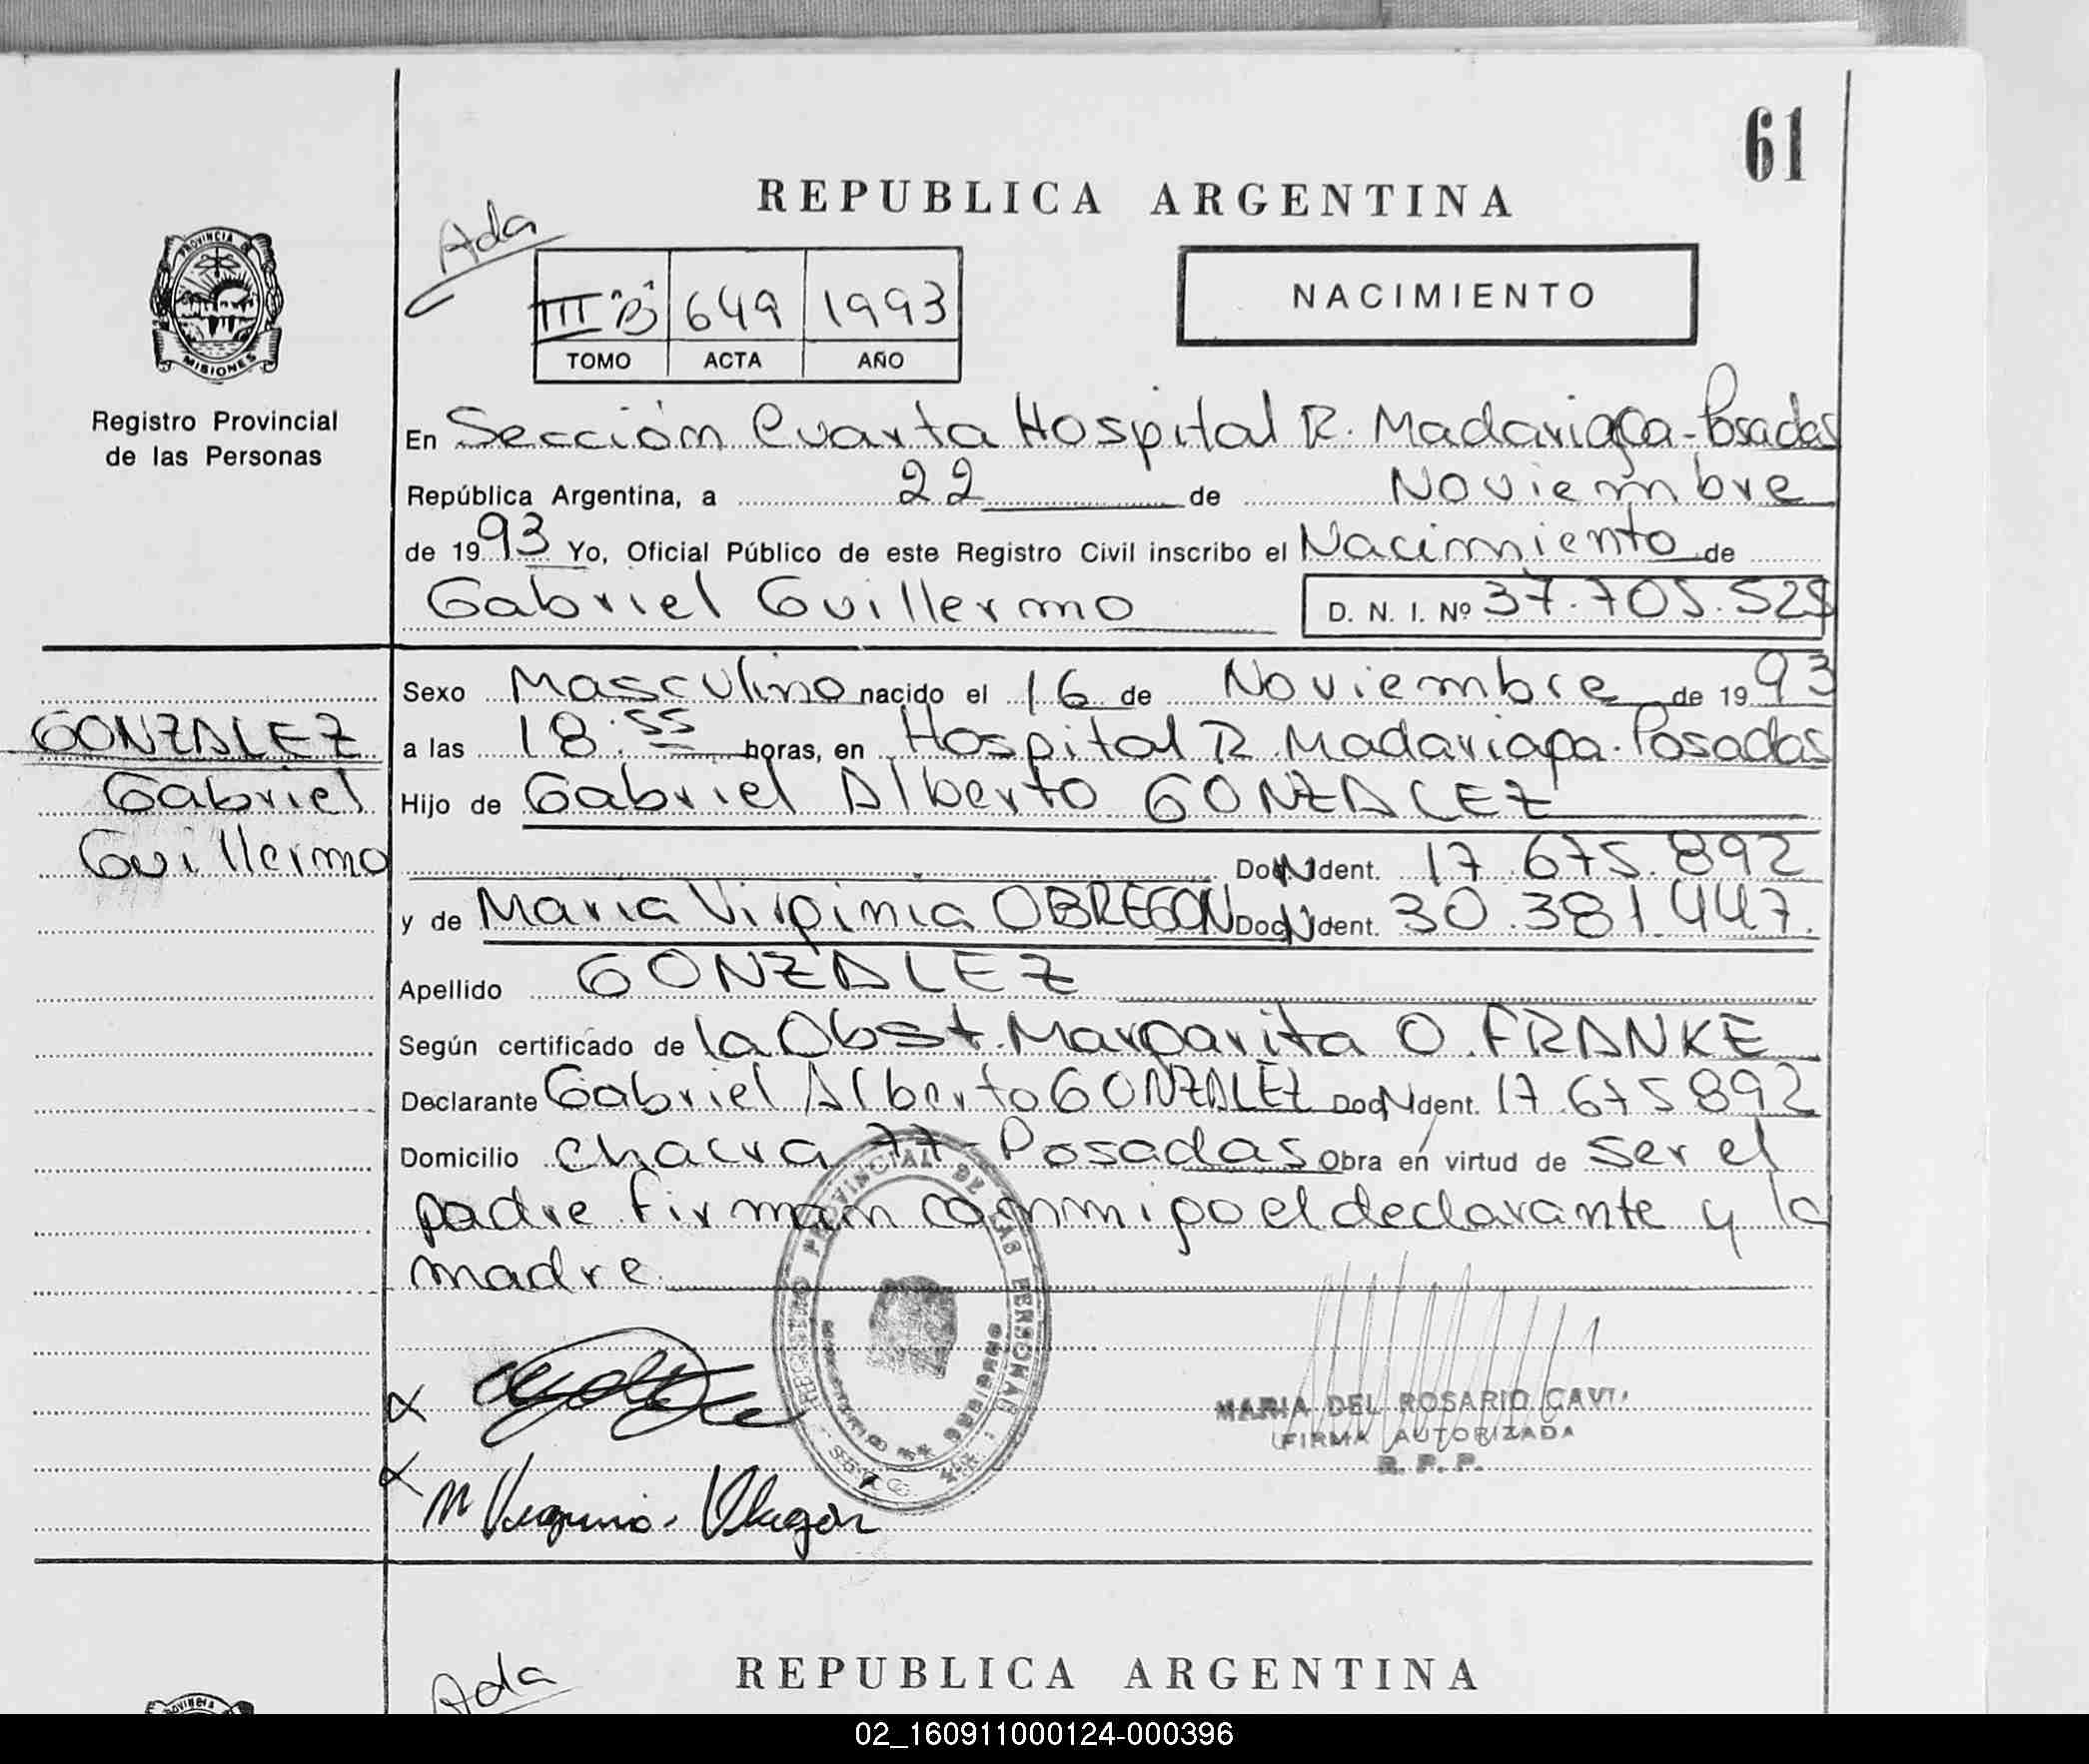 61
REPUBLICA ARGENTINA
Ada
III "B" 649 1993
TOMO ACTA AÑO
NACIMIENTO
PROVINCIA DE
MISIONES
Registro Provincial
de las Personas
En Sección Cuarta Hospital R. Madariaga - Posadas
República Argentina, a 22 de Noviembre
de 1993 Yo, Oficial Público de este Registro Civil inscribo el Nacimiento de
Gabriel Guillermo D. N. I. Nº 37.705.528
Sexo Masculino nacido el 16 de Noviembre de 1993
a las 18.55 horas, en Hospital R. Madariaga. Posadas
Hijo de Gabriel Alberto GONZALEZ
Doc. Ident. 17.675.892
y de Maria Virginia OBREGON Doc. Ident. 30.381.447.
Apellido GONZALEZ
Según certificado de la Obst. Margarita O. FRANKE
Declarante Gabriel Alberto GONZALEZ Doc. Ident. 17.675892
Domicilio chacra 77 - Posadas Obra en virtud de ser el
padre firman conmigo el declarante y la
madre
GONZALEZ
Gabriel
Guillermo
REGISTRO PROVINCIAL DE LAS PERSONAS
MARIA DEL ROSARIO
FIRMA AUTORIZADA
R. P. P.
REPUBLICA ARGENTINA
Ada
02_160911000124-000396